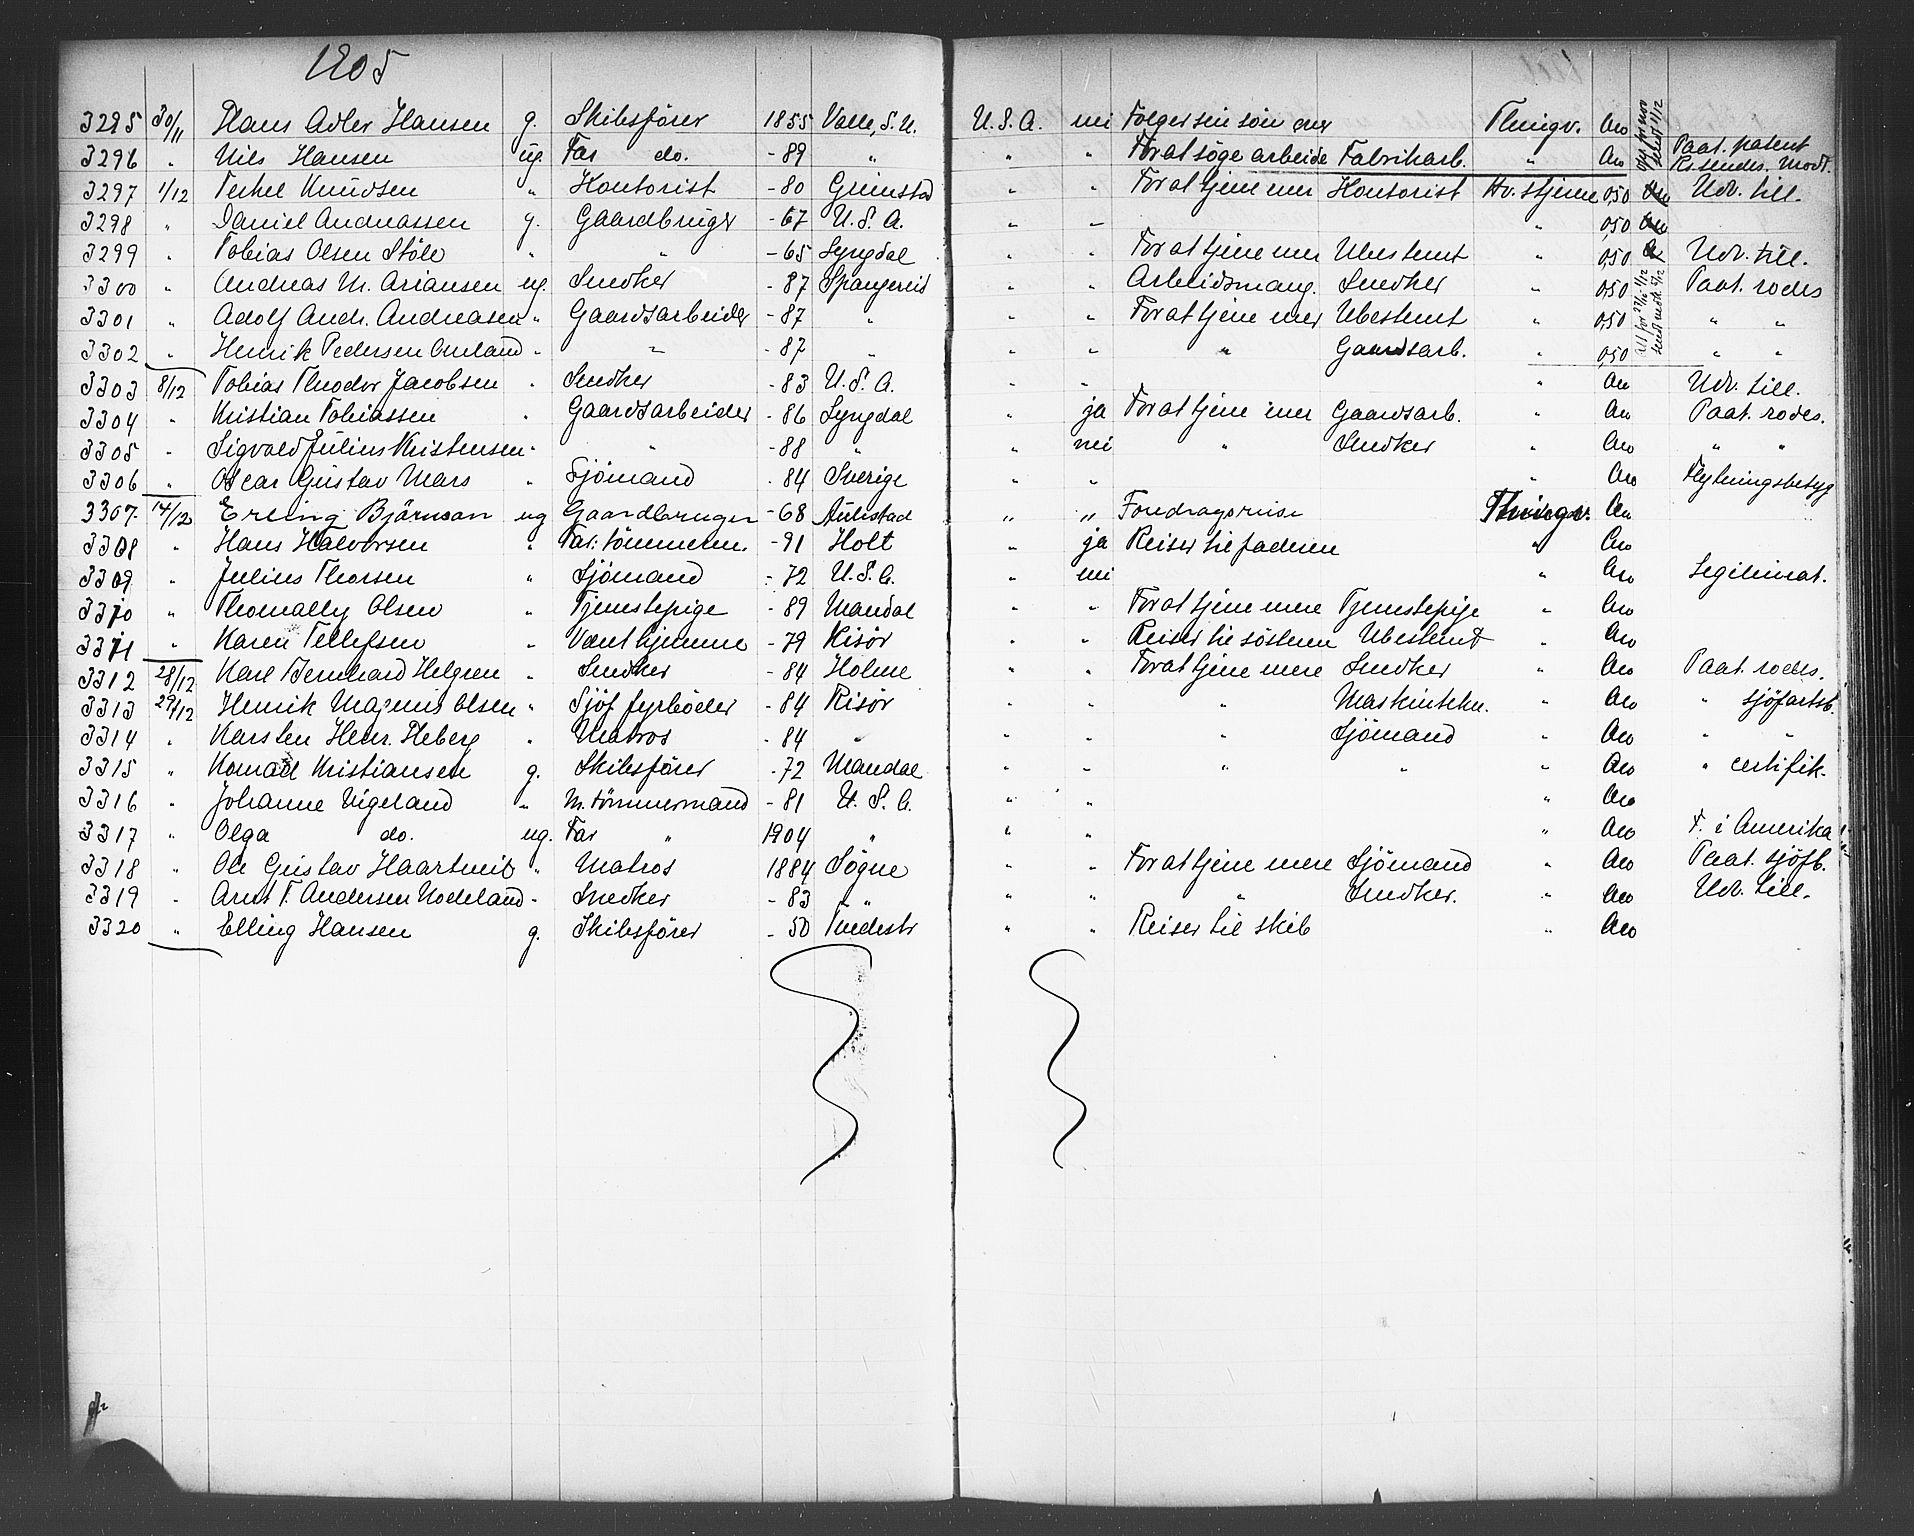 1905
3295 30/11 Hans Adler Hansen g. Skibsfører 1855 Valle, S. U. U. S. A. nei Følger sin søn over Thingv. Aro
3296 " Nils Hansen ug. Far do. -89 " " " For at søge arbeide Fabrikarb. " Aro Paat. patent
3297 1/12 Terkel Knudsen " Kontorist -80 Grimstad " " For at tjene mer Kontorist Hv. stjerne 0,50 Udv. till.
3298 " Daniel Andreassen g. Gaardbruger -67 U. S. A. " " " 0,50
3299 " Tobias Olsen Støle " " -65 Lyngdal " " For at tjene mer Ubestemt " 0,50 Udv. till.
3300 " Andreas M. Ariansen ug. Snedker -87 Spangereid " " Arbeidsmang. Snedker " 0,50 Paat. rodes
3301 " Adolf Andr. Andreasen " Gaardsarbeider -87 " " " For at tjene mer Ubestemt " 0,50 " "
3302 " Henrik Pedersen Omland " " -87 " " " " Gaardsarb. " 0,50 " "
3303 8/12 Tobias Theodor Jacobsen " Snedker -83 U. S. A. " " " Aro Udv. till.
3304 " Kristian Tobiassen " Gaardsarbeider -86 Lyngdal " ja For at tjene mer Gaardsarb. " Aro Paat. rodes.
3305 " Sigvald Julius Kristensen " " -88 " " nei " Snedker " Aro " "
3306 " Oscar Gustav Mars " Sjömand -84 Sverige " " " Aro Flytningsbetyg
3307. 14/12 Erling Björnson ug Gaardbruger -68 Aulestad " " Foredragsreise Thingv. Aro
3308 " Hans Halvorsen " Far: tömmerm. -91 Holt " ja Reiser til faderen " Aro
3309 " Julius Thorsen " Sjömand -72 U. S. A. " nei " Aro Legitimat.
3310 " Thomally Olsen " Tjenestepige -89 Mandal " " For at tjene mere Tjenestepige " Aro
3311 " Karen Tellefsen " Været hjemme -79 Risør " " Reiser til søsteren Ubestemt " Aro
3312 28/12 Karl Bernhard Helgren " Snedker -84 Holme " " For at tjene mere Snedker " Aro Paat. rodes.
3313 29/12 Henrik Magnus Olsen " Sjöf. fyrböder -84 Risør " " " " Aro " sjöfartsb.
3314 " Karsten Henr. Heberg " Matros -84 " " " " Sjömand " Aro " "
3315 " Konrad Kristiansen g. Skibsfører -72 Mandal " " " " " Aro " certifik.
3316 " Johanne Vigeland " M. tömmermand -81 U. S. A. " " " Aro
3317 " Olga do. ug. Far " 1904 " " " " Aro F. i Amerika
3318 " Ole Gustav Haartveit " Matros 1884 Søgne " " For at tjene mere Sjömand " Aro Paat. sjöfb.
3319 " Arnt T. Andersen Nodeland " Snedker -83 " " " " Snedker. " Aro Udv. till.
3320 " Elling Hansen g. Skibsfører -50 Tvedestr " " Reiser til skib " Aro